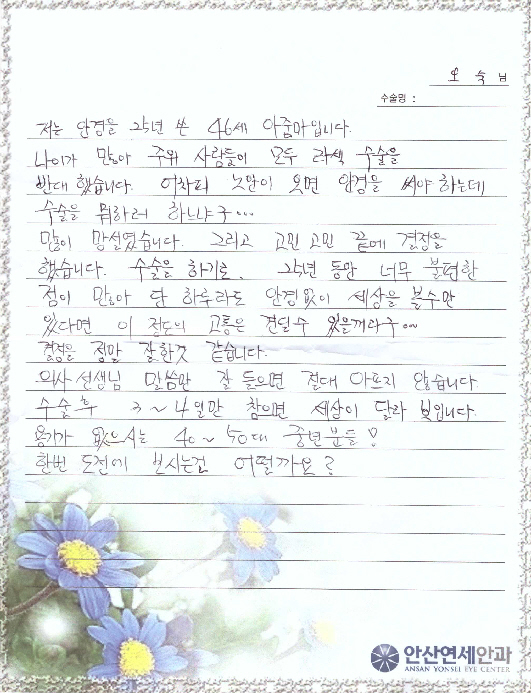 오 숙 님
수술명 :
저는 안경을 25년 쓴 46세 아줌마입니다.
나이가 많아 주위 사람들이 모두 라섹 수술을
반대 했습니다. 어차피 노안이 오면 안경을 써야 하는데
수술을 뭐하러 하느냐구...
많이 망설였습니다. 그리고 고민 고민 끝에 결정을
했습니다. 수술을 하기로. 25년 동안 너무 불편한
점이 많아 단 하루라도 안경없이 세상을 볼수만
있다면 이 정도의 고통은 견딜수 있을꺼라구...
결정을 정말 잘한것 같습니다.
의사선생님 말씀만 잘 들으면 절대 아프지 않습니다
수술후 3~4일만 참으면 세상이 달라 보입니다.
용기가 없으시는 40~50대 중년분들!
한번 도전에 보시는건 어떨까요?
안산연세안과
ANSAN YONSEI EYE CENTER